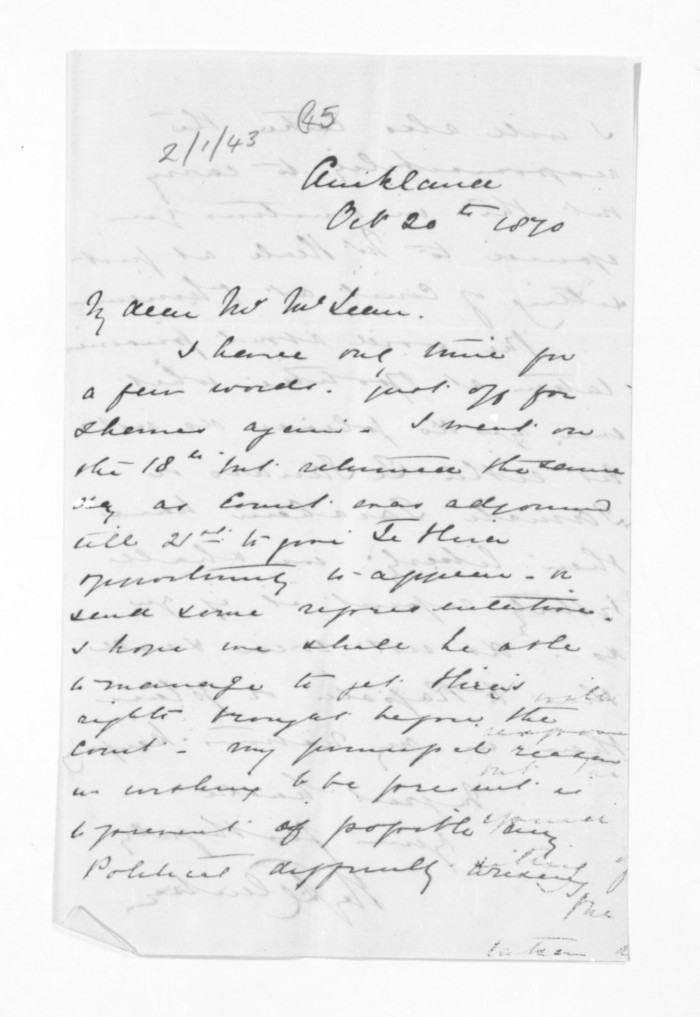 45
2/1/43
Auckland
Oct 20th 1870
My dear Mr McLean.
I have only time for
a few words. just off for
Thames again. I went on
the 18th but returned the same
day as Court was adjourned
till 21st to give Te Hira
opportunity to appear - or
send some representative.
I hope we shall be able
to manage to get Hira's
rights brought before the
Court - my principal reason
in wishing to be present is
to prevent if possible any
Political difficulty arising